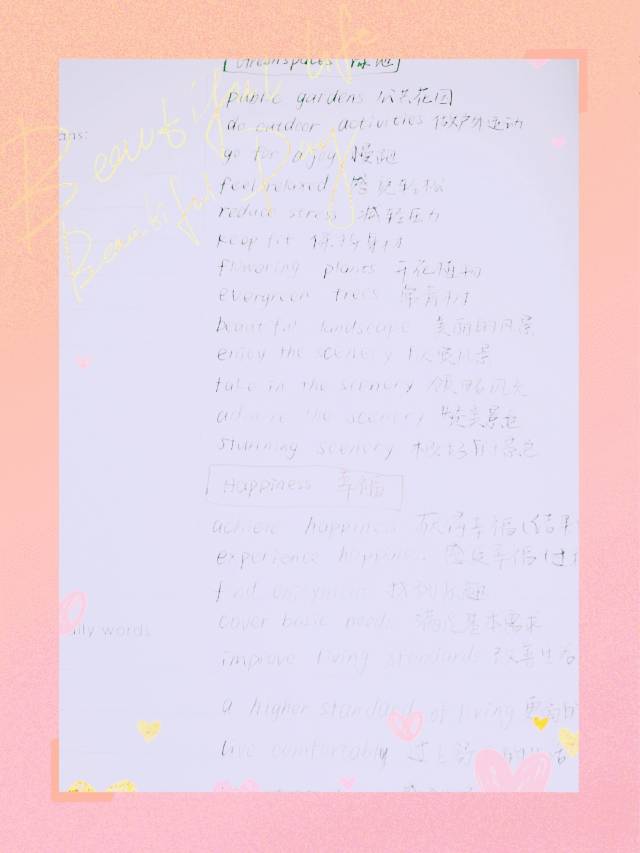 Beautiful Life
Beautiful Day
Greenspaces 绿地
public gardens 公共花园
do outdoor activities 做户外运动
go for a jog 慢跑
feel relaxed 感觉轻松
reduce stress 减轻压力
keep fit 保持身材
flowering plants 开花植物
evergreen trees 常青树
beautiful landscape 美丽的风景
enjoy the scenery 欣赏风景
take in the scenery 领略风光
admire the scenery 赞美景色
stunning scenery 极好的景色
Happiness 幸福
achieve happiness 获得幸福(结果
experience happiness 感受幸福(过
find enjoyment 找到乐趣
cover basic needs 满足基本需求
ily words
improve living standards 改善生活
a higher standard of living 更高的
live comfortably 过上舒 的生活